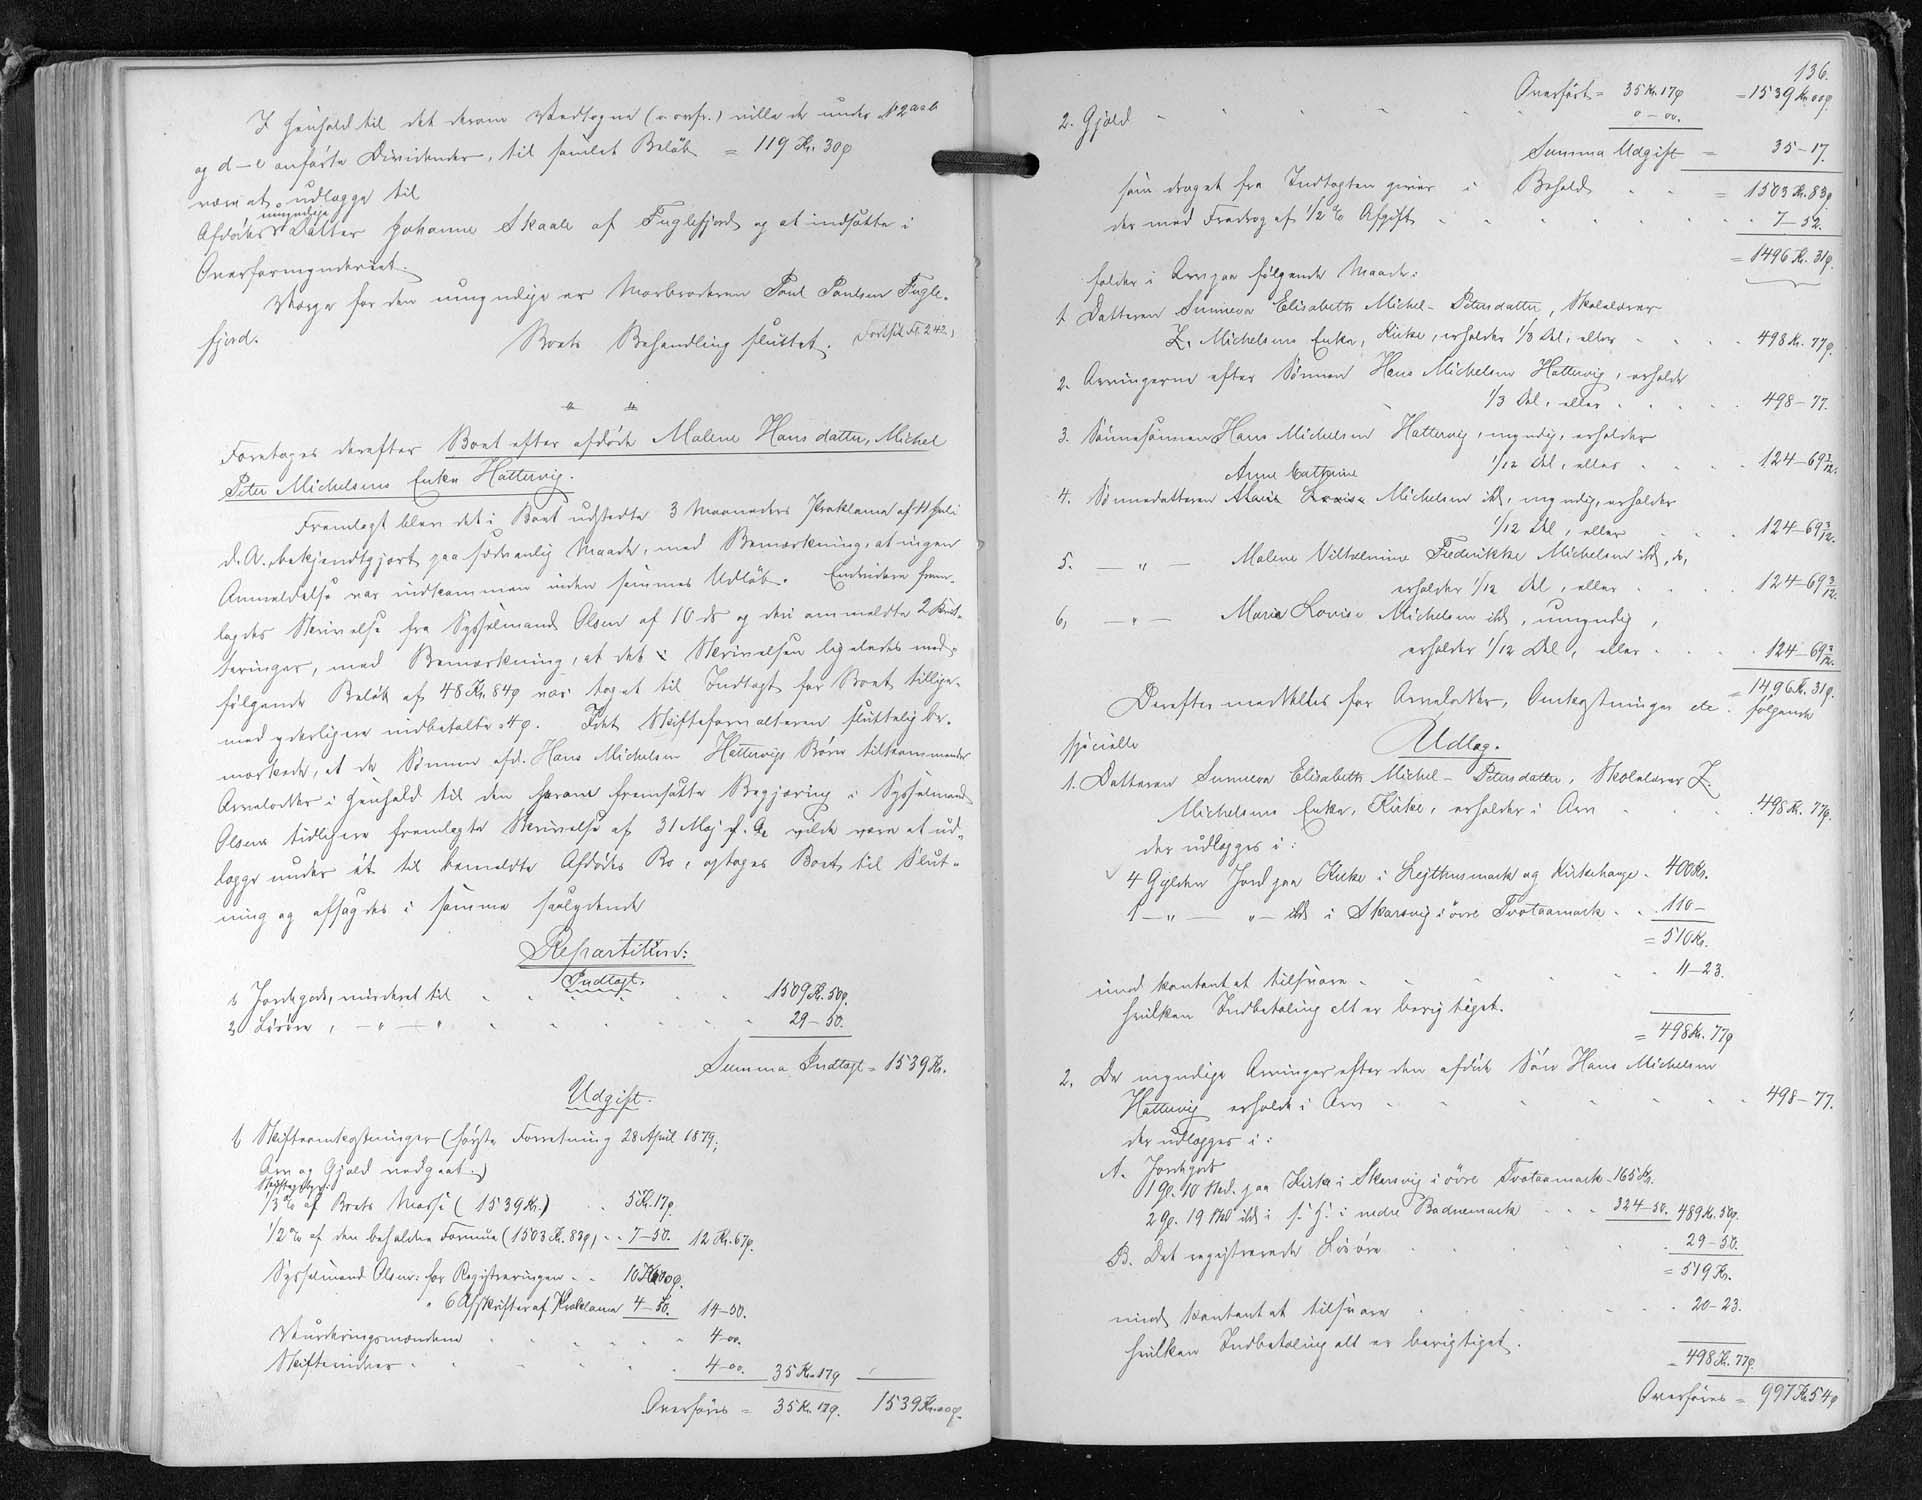 I Henhold til det derom Vedtagne (v. ovfr.) ville de under № 2 a & b
og d-e anførte Dividender, til samlet Beløb = 119 Kr. 30 ø
være at udlægge til
Afdødes umyndige Datter Johanne Skaale af Fuglefjord og at indsætte i
Overformynderiet.
Værge for den umyndige er Morbroderen Poul Poulsen Fugle-
fjord.
Boets Behandling sluttet. (Fortsat Fr. 242.)
Foretoges derefter Boet efter afdøde Malene Hansdatter, Michel
Peter Michelsens Enke Hattervig.
Fremlagt blev det i Boet udstedte 3 Maaneders Proklama af 11 Juli
d.A., bekjendtgjort paa sædvanlig Maade, med Bemærkning, at ingen
Anmeldelse var indkommen inden sammes Udløb. Endvidere frem-
lagdes Skrivelse fra Sysselmand Olsen af 10 ds og deri ommeldte 2 Kvit-
teringer, med Bemærkning, at det i Skrivelsen ligeledes med-
følgende Beløb af 48 Kr. 84 ø var taget til Indtægt for Boet tillige-
med yderligere indbetalte 4 ø. Idet Skifteforvalteren sluttelig be-
mærkede, at de Sønnen afd. Hans Michelsen Hattervigs Børn tilkommende
Arvelodder i Henhold til den herom fremsatte Begjæring i Sysselmand
Olsens tidligere fremlagte Skrivelse af 31 Maj d. A. vilde være at ud-
lægge under ét til bemeldte Afdødes Bo, optoges Boet til Slut-
ning og afsagdes i samme saalydende
Repartition:
Indtægt.
1. Jordegods, vurderet til 1509 Kr. 50 ø.
2. Løsøre, - " - " 29-50.
Summa Indtægt = 1539 Kr.
Udgift.
1. Skifteomkostninger (første Forretning 28 April 1879;
Arv og Gjæld vedgaaet.)
Skiftegebyr:
1/3 % af Boets Masse (1539 Kr.) 5 Kr. 17 ø.
1/2 % af den beholdne Formue (1503 Kr. 83 ø) 7-50. 12 Kr. 67 ø.
Sysselmand Olsen: for Registreringen 10 Kr. 00 ø.
" 6 Afskrifter af Proklama 4-50. 14-50.
Vurderingsmændene 4-00.
Skiftevidner 4-00. 35 Kr. 17 ø
Overføres = 35 Kr. 17 ø. 1539 Kr. 00 ø.
136.
Overført = 35 Kr. 17 ø = 1539 Kr. 00 ø.
2. Gjæld 0-00.
Summa Udgift = 35-17.
som draget fra Indtægten giver i Behold = 1503 Kr. 83 ø
der med Fradrag af 1/2 % Afgift 7-52.
= 1496 Kr. 31 ø.
falder i Arv paa følgende Maade:
1. Datteren Sunneva Elisabeth Michel-Petersdatter, Skolelærer
Z. Michelsens Enke, Kirke, erholder 1/3 Del, eller 498 Kr. 77 ø.
2. Arvingerne efter Sønnen Hans Michelsen Hattervig, erholde
1/3 Del, eller 498-77.
3. Sønnesønnen Hans Michelsen Hattervig, myndig, erholder
1/12 Del, eller 124-69 3/12.
Anne Cathrine
4. Sønnedatteren Maria Lovise Michelsen ibd., myndig, erholder
1/12 Del, eller 124-69 3/12.
5. - " - Malene Vilhelmine Frederikke Michelsen ibd., do,
erholder 1/12 Del, eller 124-69 3/12.
6, - " - Maria Lovise Michelsen ibd., umyndig,
erholder 1/12 Del, eller 124-69 3/12.
= 1496 Kr. 31 ø.
Derefter meddeltes for Arvelodder, Omkostninger etc. følgende
specielle
Udlæg.
1. Datteren Sunneva Elisabeth Michel-Petersdatter, Skolelærer Z.
Michelsens Enke, Kirke, erholder i Arv 498 Kr. 77 ø.
der udlægges i:
4 Gylden Jord paa Kirke i Lejthusmark og Kirkehauge 400 Kr.
1 - " - " - ibd. i Skarsvig i øvre Tvotaamark 110-
= 510 Kr.
imod kontant at tilsvare 11-23.
hvilken Indbetaling alt er berigtiget.
= 498 Kr. 77 ø
2. De myndige Arvinger efter den afdøde Søn Hans Michelsen
Hattervig erholde i Arv 498-77.
der udlægges i:
A. Jordegods
1 G. 10 Skd. paa Kirke i Skarsvig i øvre Tvotaamark 165 Kr.
2 G. 19 Skd ibd i s. H. i nedre Badnemark 324-50. 489 Kr. 50 ø.
B. Det registrerede Løsøre 29-50.
= 519 Kr.
imod kontant at tilsvare 20-23.
hvilken Indbetaling alt er berigtiget.
= 498 Kr. 77 ø.
Overføres = 997 Kr. 54 ø